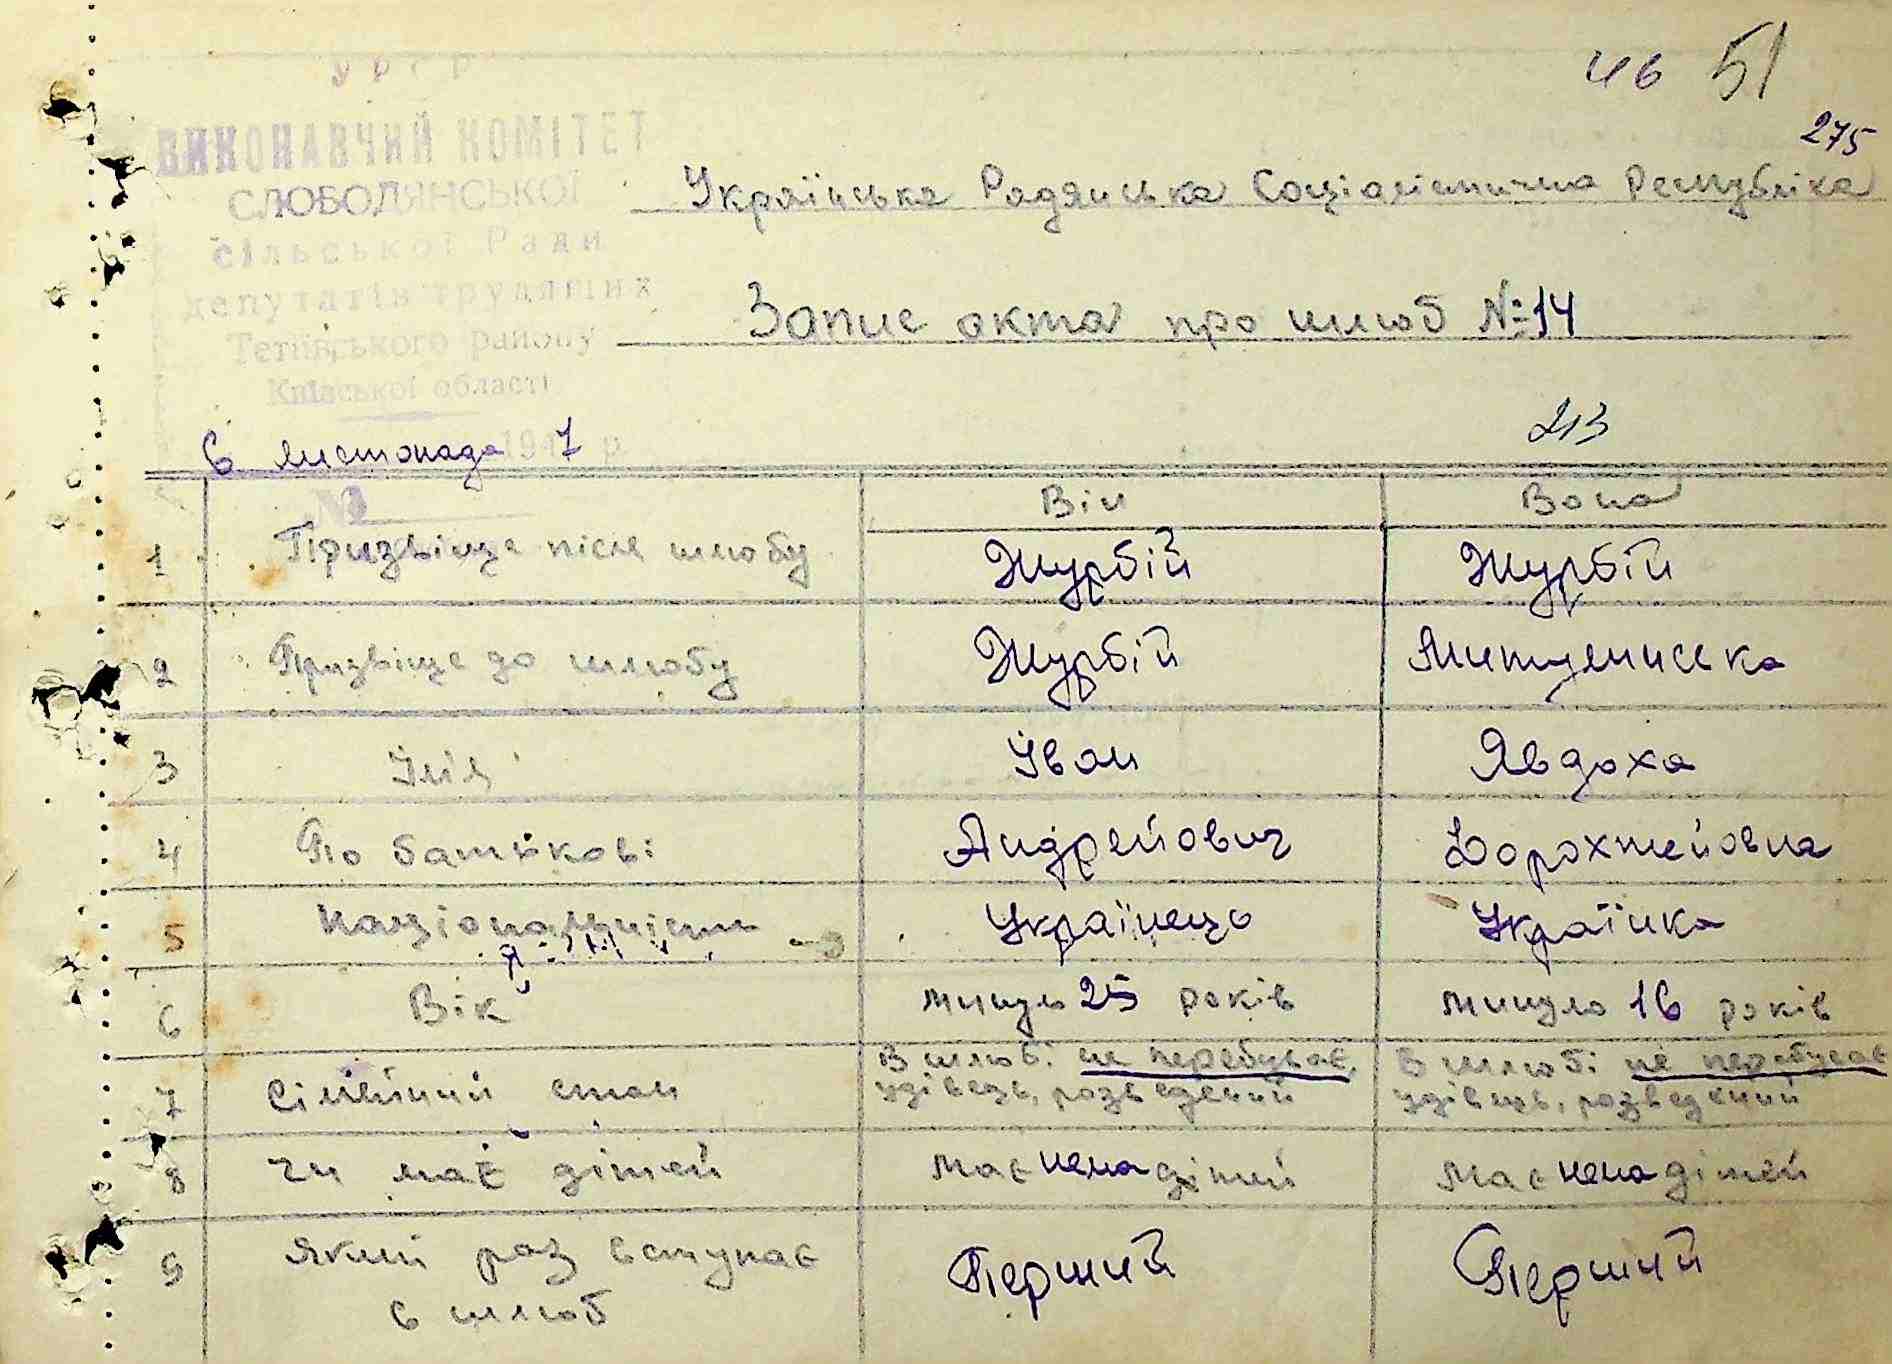 46 51
275
УРСР
ВИКОНАВЧИЙ КОМІТЕТ
СЛОБОДЯНСЬКОЇ
сільської Ради
депутатів трудящих
Тетіївського району
Київської області
Українська Радянська Соціалістична Республіка
Запис акта про шлюб № 14
213
6 листопада 1947 р.
№
Він Вона
1 Призвіще після шлюбу Журбій Журбій
2 Призвіще до шлюбу Журбій
3 Імія Іван Явдоха
4 По батькові Андрейович Дорохтейовна
5 Національність Українець Українка
6 Вік минуло 25 років минуло 16 років
7 Сімейний стан В шлюбі не перебуває, удівець, розведений В шлюбі не перебуває удівець, розведений
8 Чи має дітей має нема дітей має нема дітей
9 Який раз вступає Перший Перший
в шлюб